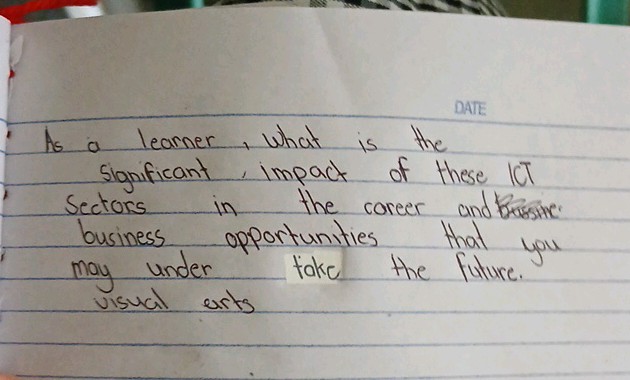 DATE
As a learner, what is the
significant, impact of these ICT
Sectors in the career and
business opportunities that you
may under take the future.
visual arts